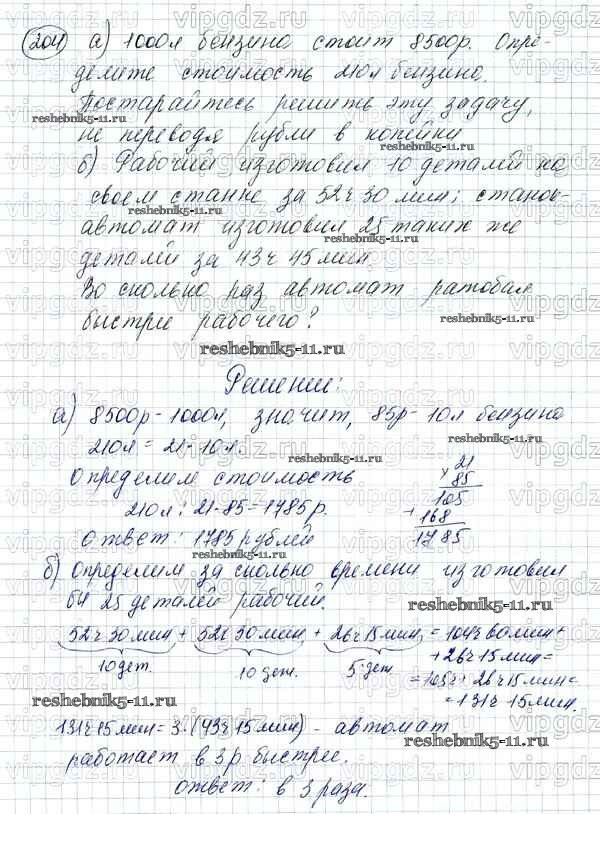 204 а) 1000л бензина стоит 8500р. Опре-
делите стоимость 210л бензина.
Постарайтесь решить эту задачу,
не переводя рубли в копейки
б) Рабочий изготовил 10 деталей на
своем станке за 52ч 30 мин; станок-
автомат изготовил 25 таких же
деталей за 43ч 45мин.
Во сколько раз автомат работал
быстрее рабочего?
reshebnik5-11.ru
Решение:
а) 8500р - 1000л, значит, 85р - 10л бензина
210л = 21·10л.
Определим стоимость
210л: 21·85=1785р.
21
× 85
105
+ 168
1785
Ответ: 1785 рублей
б) Определим за сколько времени изготовил
бы 25 деталей рабочий.
52ч 30мин + 52ч 30мин + 26ч 15мин = 104ч 60мин+
+26ч 15мин=
=105ч+26ч15мин=
=131ч 15мин.
10дет. 10 дет. 5 дет
131ч15мин=3·(43ч15мин) - автомат
работает в 3р быстрее.
Ответ: в 3 раза.
reshebnik5-11.ru
vipgdz.ru